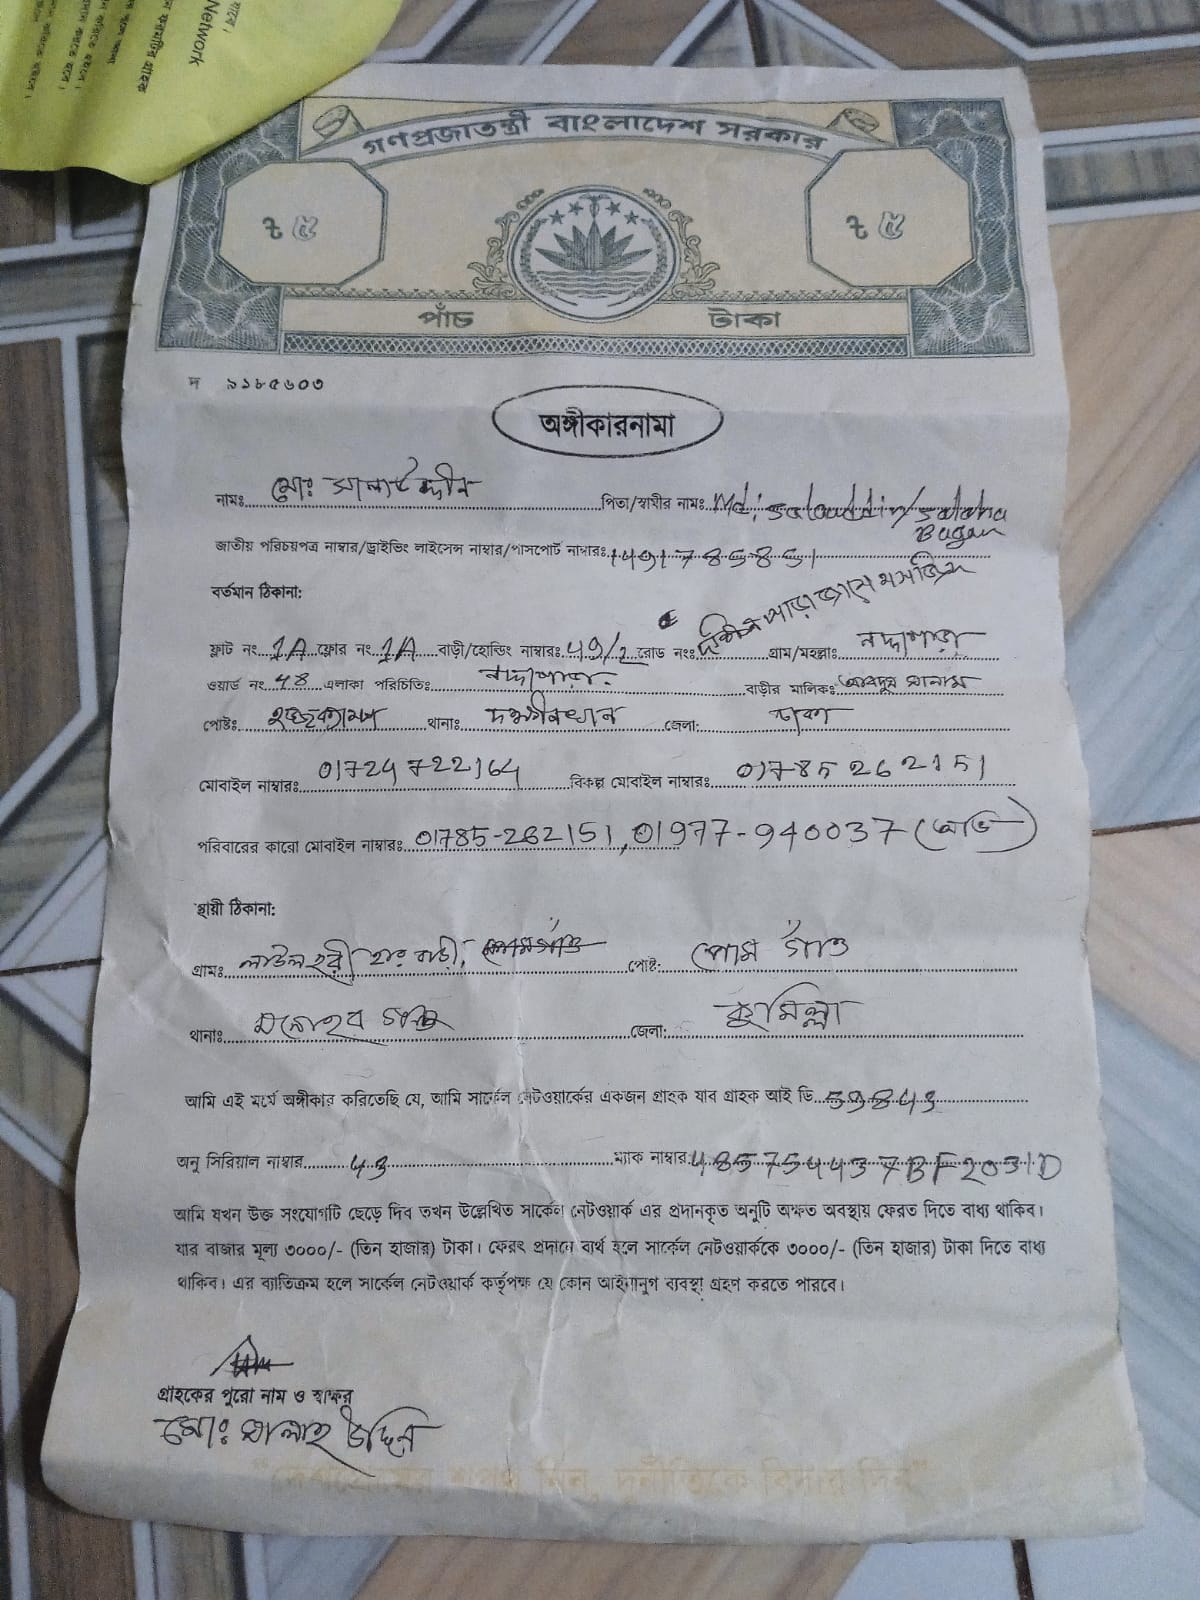 গণপ্রজাতন্ত্রী বাংলাদেশ সরকার
৳ ৫ ৳ ৫
পাঁচ টাকা
দ ৯১৮৫৬০৩
অঙ্গীকারনামা
নামঃ মোঃ সালাউদ্দীন পিতা/স্বামীর নামঃ Md: salauddin/salaha
Bagan
জাতীয় পরিচয়পত্র নাম্বার/ড্রাইভিং লাইসেন্স নাম্বার/পাসপোর্ট নাম্বারঃ 1491785851
বর্তমান ঠিকানা:
ফ্লাট নং 1A ফ্লোর নং 1A বাড়ী/হোল্ডিং নাম্বারঃ 49/2 রোড নংঃ দক্ষিণ পাড়া জামে মসজিদ গ্রাম/মহল্লাঃ নদ্দাপাড়া
ওয়ার্ড নং 48 এলাকা পরিচিতিঃ নদ্দাপাড়া. বাড়ীর মালিকঃ আবদুস সালাম
পোষ্টঃ থানাঃ দক্ষীনখান জেলা: ঢাকা
মোবাইল নাম্বারঃ 01724722164 বিকল্প মোবাইল নাম্বারঃ 01785262151
পরিবারের কারো মোবাইল নাম্বারঃ 01785-262151, 01977-940037
স্থায়ী ঠিকানা:
গ্রামঃ পোষ্ট: পোম গাঁও
থানাঃ মনোহর গঞ্জ জেলা: কুমিল্লা
আমি এই মর্মে অঙ্গীকার করিতেছি যে, আমি সার্কেল নেটওয়ার্কের একজন গ্রাহক যাব গ্রাহক আই ডি 59843
অনু সিরিয়াল নাম্বার 43 ম্যাক নাম্বার: 485754437BF2031D
আমি যখন উক্ত সংযোগটি ছেড়ে দিব তখন উল্লেখিত সার্কেল নেটওয়ার্ক এর প্রদানকৃত অনুটি অক্ষত অবস্থায় ফেরত দিতে বাধ্য থাকিব।
যার বাজার মূল্য ৩০০০/- (তিন হাজার) টাকা। ফেরৎ প্রদানে ব্যর্থ হলে সার্কেল নেটওয়ার্ককে ৩০০০/- (তিন হাজার) টাকা দিতে বাধ্য
থাকিব। এর ব্যতিক্রম হলে সার্কেল নেটওয়ার্ক কর্তৃপক্ষ যে কোন আইনানুগ ব্যবস্থা গ্রহণ করতে পারবে।
গ্রাহকের পুরো নাম ও স্বাক্ষর
মোঃ সালাহ উদ্দিন
"দেশপ্রেমের শপথ নিন, দুর্নীতিকে বিদায় দিন"
Network